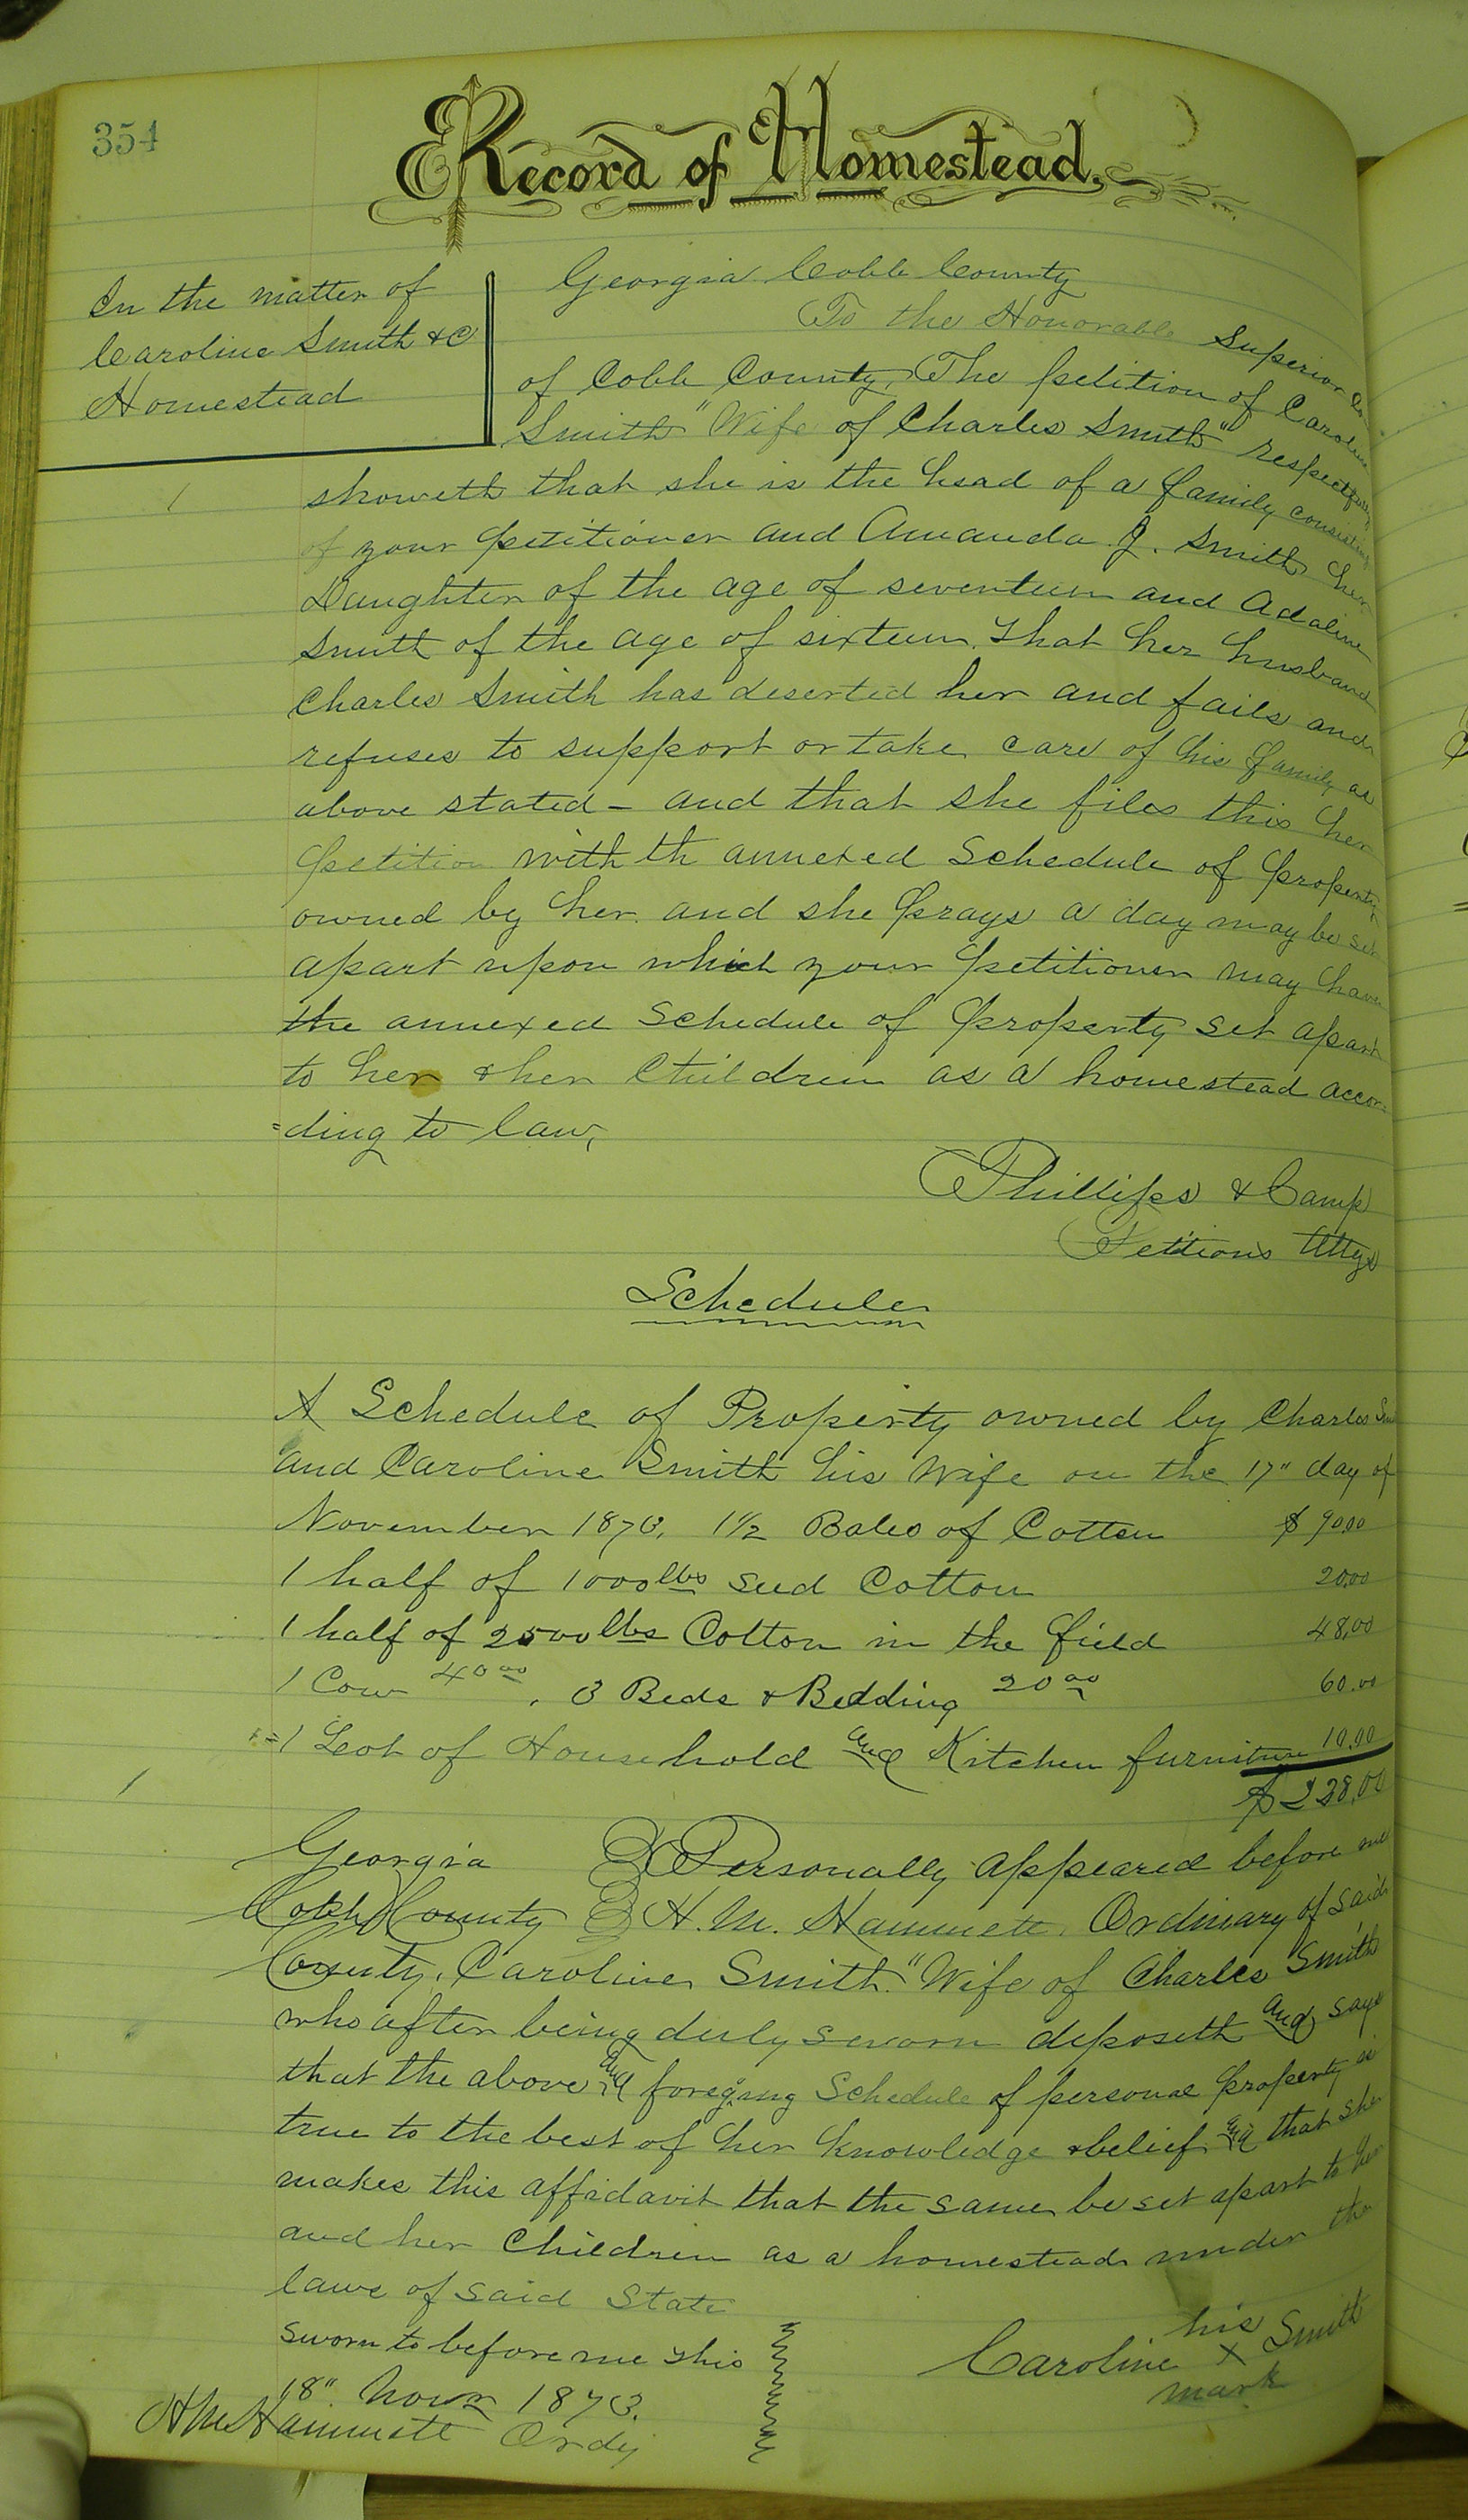 354
Record of Homestead.
In the matter of
Caroline Smith & C
Homestead
Georgia Cobb County
To the Honorable Superior Co
of Cobb County, The petition of Caroline
Smith "Wife of Charles Smith" respectfully
showeth that she is the head of a family consisting
of your petitioner and Amanda J. Smith her
Daughter of the age of seventeen and Adaline
Smith of the age of sixteen. That her husband
Charles Smith has deserted her and fails and
refuses to support or take care of his family as
above stated - and that she files this her
petition with th annexed Schedule of property
owned by her and she prays a day may be set
apart upon which your petitioner may have
the annexed Schedule of property set apart
to her & her Children as a homestead accor-
=ding to law,
Phillips & Camp
Petitions Attys
Schedule
A Schedule of Property owned by Charles Smi
and Caroline Smith his Wife on the 17" day of
November 1873, 1 1/2 Bales of Cotton $ 90.00
1 half of 1000 lbs seed Cotton 20.00
1 half of 2500 lbs Cotton in the field 48,00
1 Cow 40 00 , 3 Beds & Bedding 20 00 60.00
1 Lot of Household and Kitchen furniture 10.00
$ 228,00
Georgia Personally appeared before me
Cobb County H. M. Hammett, Ordinary of said
County, Caroline Smith. "Wife of Charles Smith
who after being duly sworn deposeth and says
that the above and foregoing Schedule of personal property is
true to the best of her knowledge & belief and that she
makes this affidavit that the same be set apart to her
and her Children as a homestead under the
laws of said State
Sworn to before me this
18" Novr 1873.
H M Hammett Ordy
his
Caroline x Smith
mark